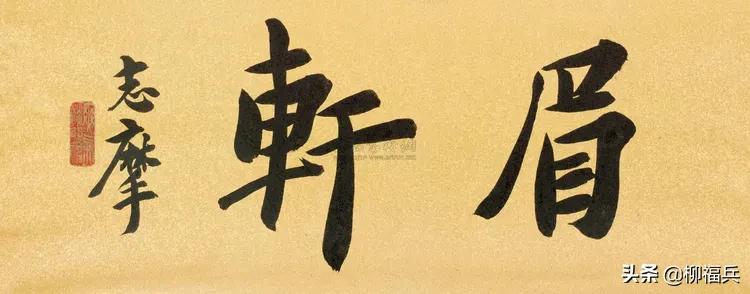 眉軒
志摩
头条 @柳福兵